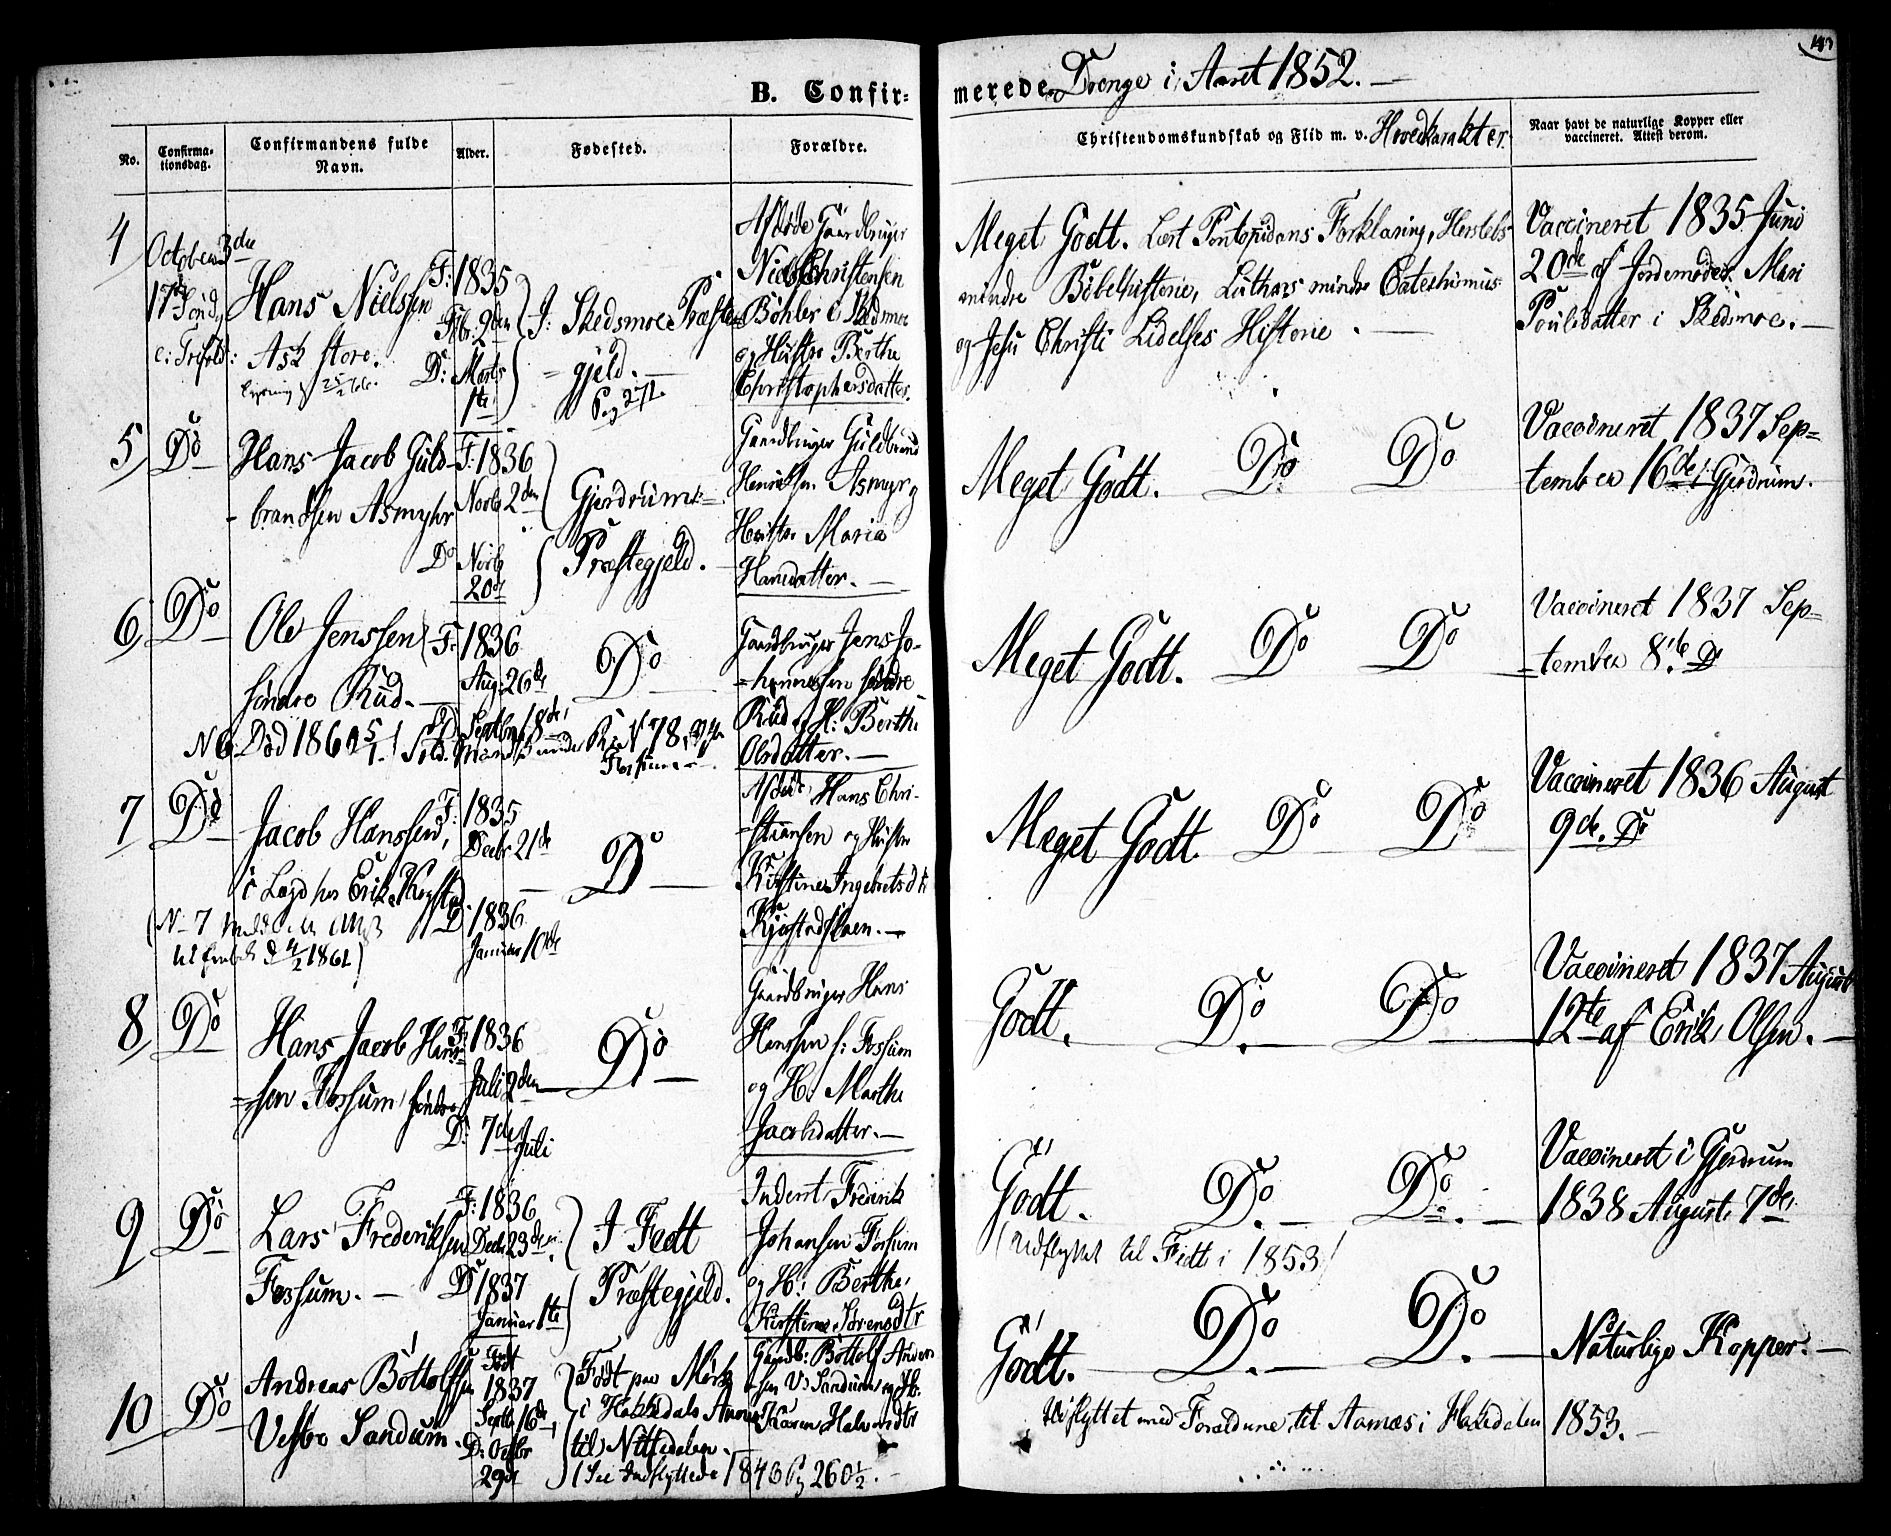 B. Confirmerede Drenge i Aaret 1852.
No.
Confirmationsdag.
Confirmandens fulde Navn.
Alder.
Fødested.
Forældre.
Christendomskundskab og Flid m. v. Hovedkarakter.
Naar havt de naturlige Kopper eller vaccineret. Attest derom.
4
October 3die
17de Sønd.
e: Trifold:
Hans Nielssen
Ask store.
F: 1835
Fbr. 9den
D: Marts
1ste
I: Skedsmoe Præste=
= gjeld. —
Pag 271.
Afdøde Gaardbruger
Niels Christensen
Böhler i Skedsmoe
og Hustro Berthe
Christophersdatter.
Meget Godt. Læst Pontopidans Forklaring, Herslebs
mindre Bibelhistorie, Luthers mindre Catechismus
og Jesu Christi Lidelses Historie. —
Vaccineret 1835 Juni
20de af Jordemoder Mari
Poulsdatter i Skedsmoe. —
5
Do
Hans Jacob Guld-
brandsen Asmyhr
F: 1836
Novb 2den
Do Novb
20de
Gjerdrums
Præstegjeld. —
Gaardbruger Guldbrand
Henriksen Asmyr og
Hustro Maria
Hansdatter. —
Meget Godt. Do Do
Vaccineret 1837 Sep=
tember 16de i Gjerdrum.
6
Do
Ole Jenssen
søndre Rud. —
F: 1836
Aug: 26de
D: Septbr 18de
Do
NB. Død 1860 5/1
Gaardbruger Jens Jo-
=hannessen søndre
Rud og H: Berthe
Olsdatter. —
Meget Godt. Do Do
Vaccineret 1837 Sep=
=tember 8de Do
7
Do
Jacob Hanssen,
i Lægd hos Erik Kogstad
F: 1835
Decbr 21de
D 1836
Januar 10de
(No 7
4/2 1861)
Do
Afdøde Hans Chri-
=stiansen og Hustro
Kirstine Ingebretsdtr
Kjøstadfloen. —
Meget Godt. Do Do
Vaccineret 1836 August
9de. Do
8
Do
Hans Jacob Hans-
=sen Fossum søndre
F: 1836
Juli 2den
D: 7de Juli
Do
Gaardbruger Hans
Hanssen s: Fossum
og H: Marthe
Jacobsdatter. —
Godt. Do Do
Vaccineret 1837 August
12te af Erik Olsen. —
9
Do
Lars Frederiksen
Fossum. —
F: 1836
Decbr 23de
D 1837
Januar 1ste
I Fedt
Præstegjeld.
Inderst Frederik
Johansen Fossum
og H: Berthe
Kirstine Sørensdtr
Godt. Do Do
(Udflyttet til Fedt i 1853)
Vaccineret i Gjerdrum
1838 August 7de
10
Do
Andreas Bottolfsen
Vestre Sandum.
Født
1837
Septb 16de
D: Octbr
29de
Født paa Mörk
i Hakkedals Annex
til Nittedalen.
(See Indflyttede 1843 Pag 260 1/2.
Gaardb: Bottolf Anders
=sen V: Sandum og H:
Karen Halvorsdtr
Godt. Do Do
Udflyttet med Forældrene til Aamæs i Hakedalen 1853. —
Naturlige Kopper. —